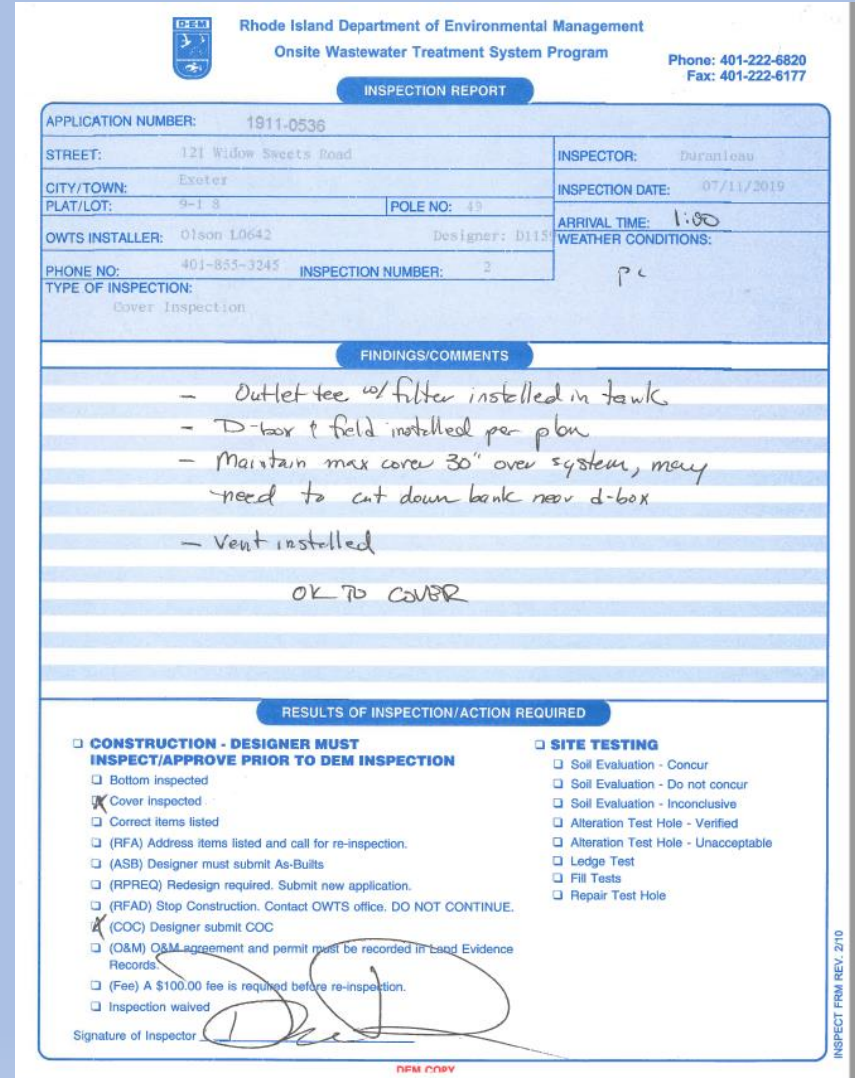 D·E·M
Rhode Island Department of Environmental Management
Onsite Wastewater Treatment System Program
Phone: 401-222-6820
Fax: 401-222-6177
INSPECTION REPORT
APPLICATION NUMBER: 1911-0536
STREET: 121 Widow Sweets Road
INSPECTOR: Duranleau
CITY/TOWN: Exeter
INSPECTION DATE: 07/11/2019
PLAT/LOT: 9-1 8 POLE NO: 49
ARRIVAL TIME: 1:00
OWTS INSTALLER: Olson L0642 Designer: D115
WEATHER CONDITIONS:
PC
PHONE NO: 401-855-3245 INSPECTION NUMBER: 2
TYPE OF INSPECTION:
Cover Inspection
FINDINGS/COMMENTS
- Outlet tee w/ filter installed in tank
- D-box & field installed per plan
- Maintain max cover 30" over system, may
need to cut down bank near d-box
- Vent installed
OK TO COVER
RESULTS OF INSPECTION/ACTION REQUIRED
CONSTRUCTION - DESIGNER MUST
INSPECT/APPROVE PRIOR TO DEM INSPECTION
Bottom inspected
Cover inspected
Correct items listed
(RFA) Address items listed and call for re-inspection.
(ASB) Designer must submit As-Builts
(RPREQ) Redesign required. Submit new application.
(RFAD) Stop Construction. Contact OWTS office. DO NOT CONTINUE.
(COC) Designer submit COC
(O&M) O&M agreement and permit must be recorded in Land Evidence
Records.
(Fee) A $100.00 fee is required before re-inspection.
Inspection waived
Signature of Inspector
SITE TESTING
Soil Evaluation - Concur
Soil Evaluation - Do not concur
Soil Evaluation - Inconclusive
Alteration Test Hole - Verified
Alteration Test Hole - Unacceptable
Ledge Test
Fill Tests
Repair Test Hole
INSPECT FRM REV. 2/10
DEM COPY